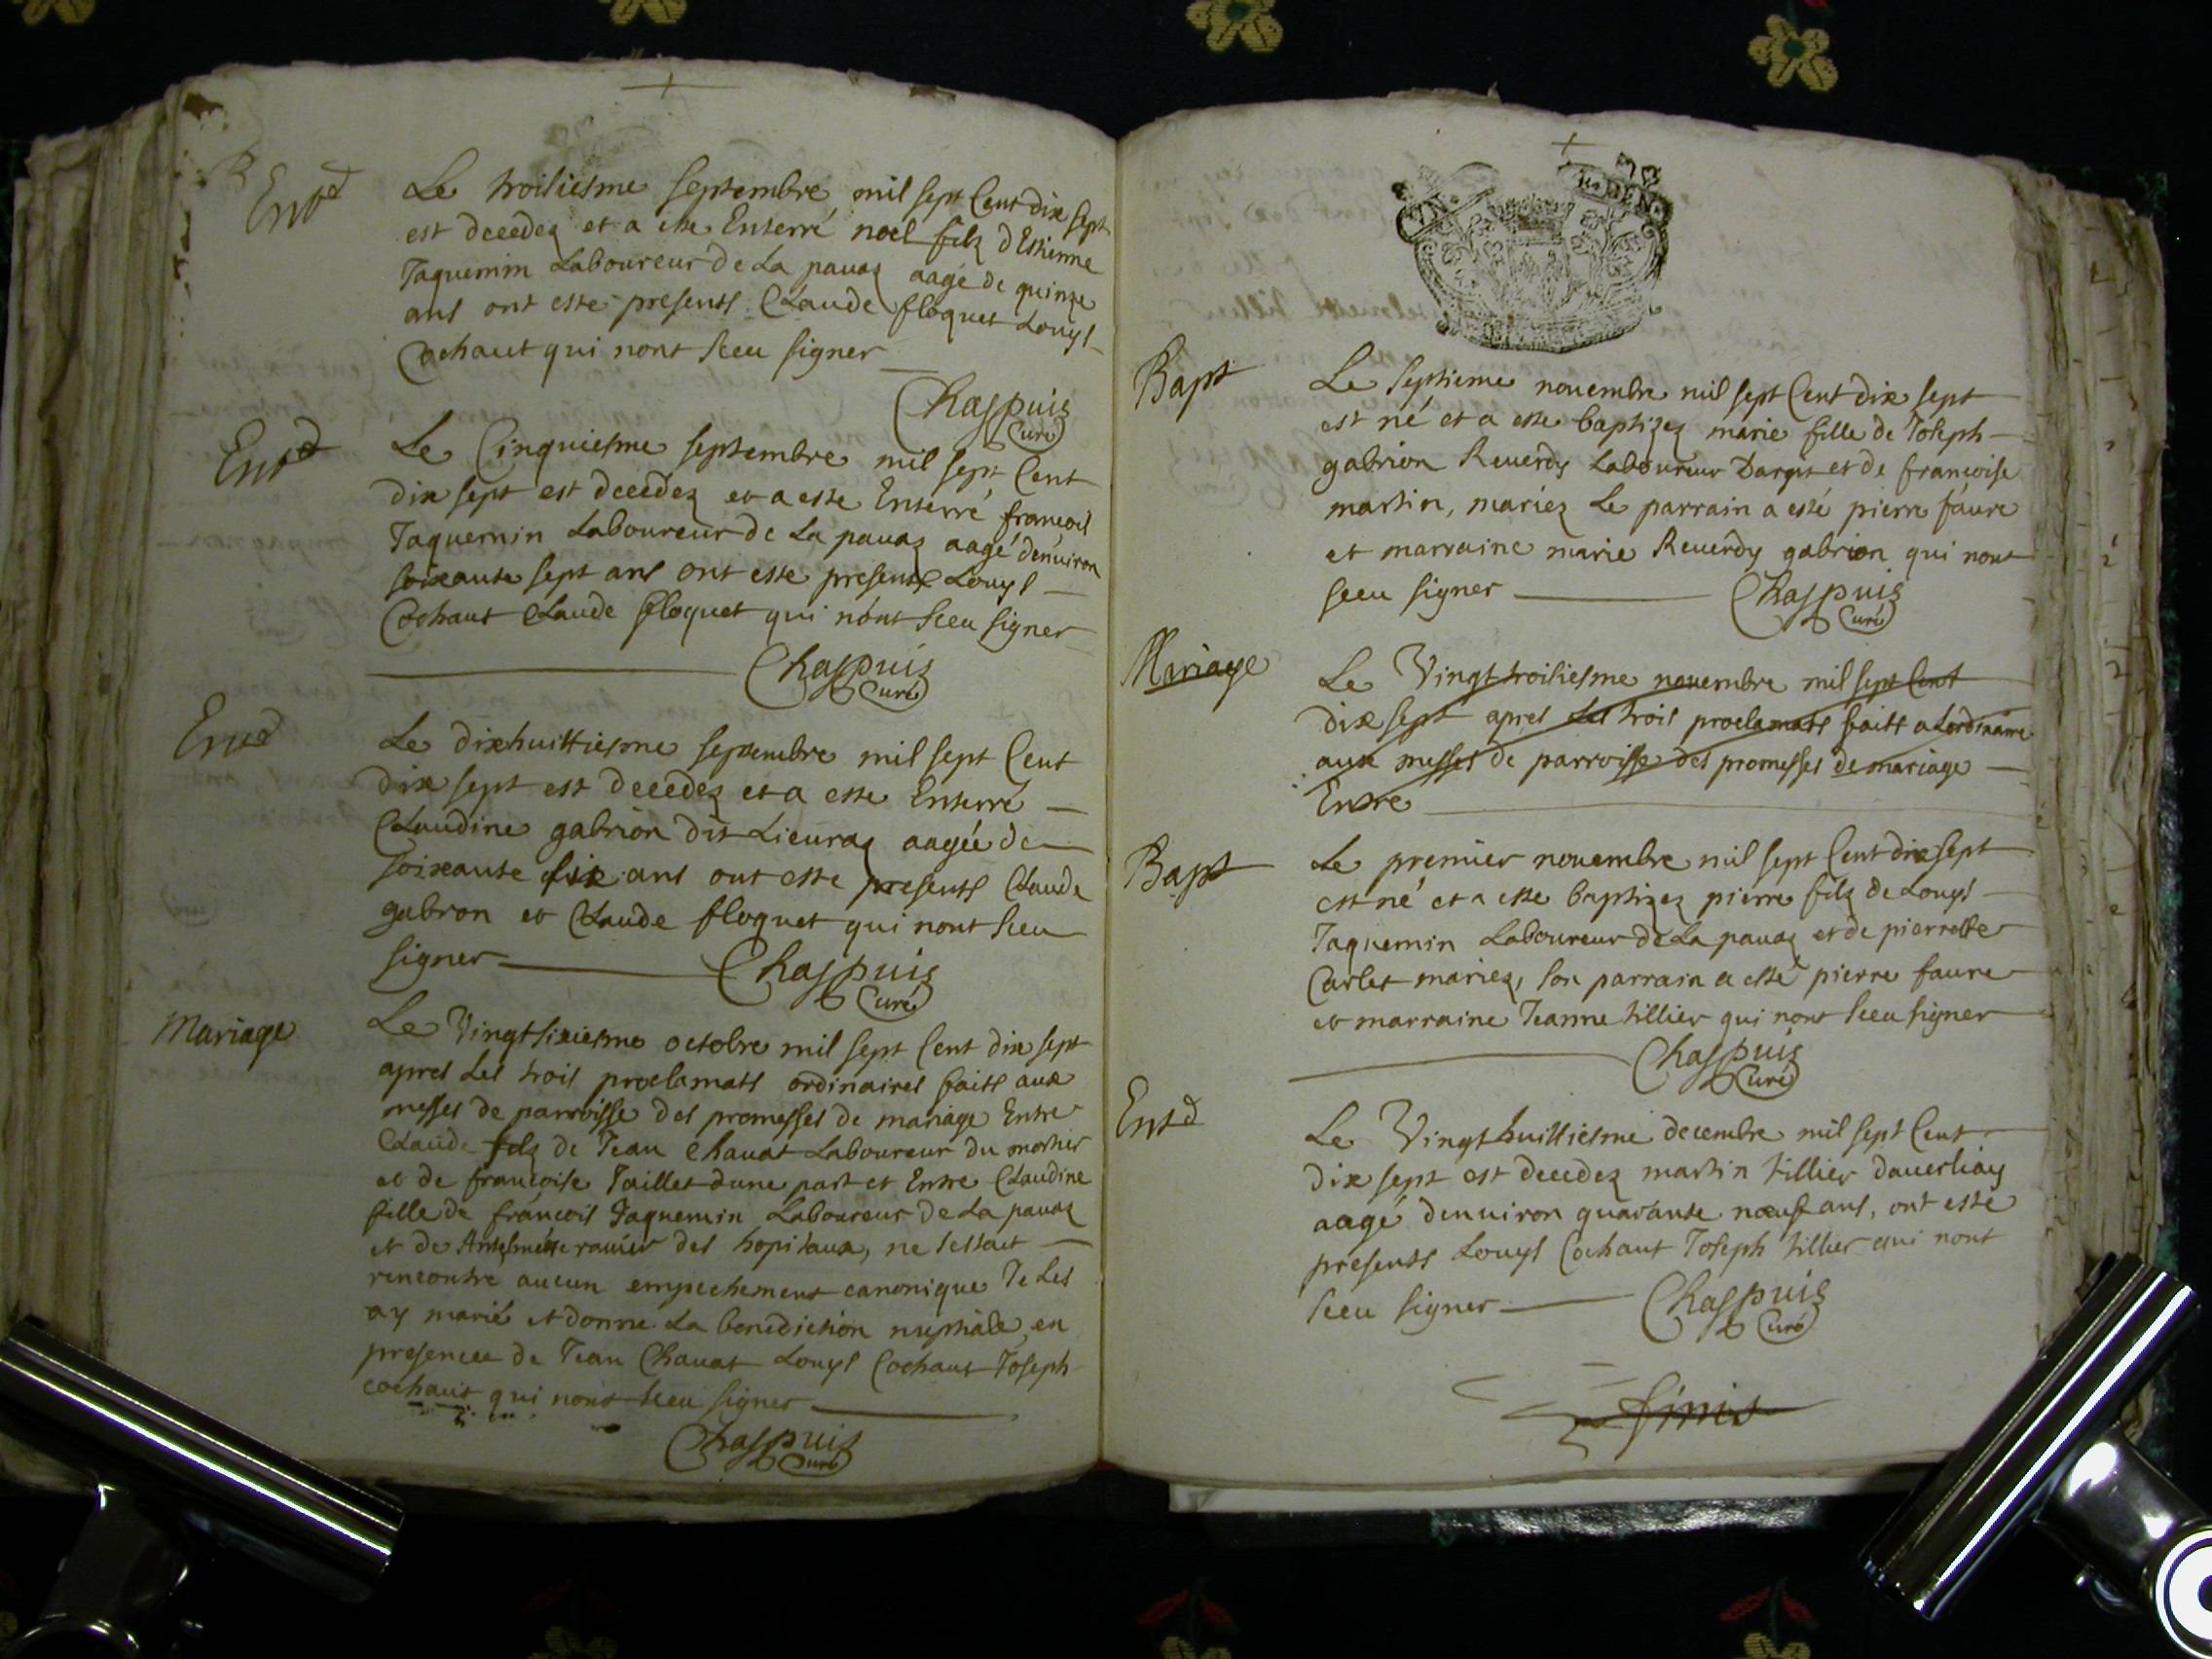 Ent
Le troisiesme septembre mil sept Cent dix sept
est decedez et a este Enterré noel filz dEstienne
Jaquemin Laboureur de La pavaz aagé de quinze
ans ont este presents Claude floquet Louys
Cochaut qui nont sceu signer
Chaspuis
Curé
Ent
Le Cinquiesme septembre mil sept Cent
dix sept est decedez et a este Enterré francois
Jaquemin Laboureur de La pavaz aagé denuiron
soixante sept ans ont este presents Louys
Cochaut Claude floquet qui nont sceu signer
Chaspuis
Curé
Ent
Le dixhuittiesme septembre mil sept Cent
dix sept est decedez et a este Enterré
Claudine gabrion dit Lieuraz aagée de
soixante six ans ont este presents Claude
gabron et Claude floquet qui nont sceu
signer Chaspuis
Curé
Mariage
Le Vingtsixiesme octobre mil sept Cent dix sept
apres Les trois proclamats ordinaires faits aux
messes de parroisse des promesses de mariage Entre
Claude filz de Jean Chauat Laboureur du mortier
et de francoise Taillet dune part et Entre Claudine
fille de francois Jaquemin Laboureur de La pavaz
et de Antelmette rauier des hopitaux, ne sestant
rencontre aucun empechement canonique Je Les
ay marié et donne La benediction nuptiale en
presence de Jean Chauat Louys Cochaut Joseph
cochaut qui nont sceu signer
Chaspuis
Curé
Bapt
Le septieme nouembre mil sept Cent dix sept
est né et a este baptizez marie fille de Joseph
gabrion Reuerdy Laboureur Dargit et de francoise
martin, mariez Le parrain a esté pierre faure
et marraine marie Reuerdy gabrion qui nont
sceu signer Chaspuis
Curé
Mariage
Le Vingttroisiesme nouembre mil sept Cent
dix sept apres Les trois proclamats faits a Lordinaire
aux messes de parroisse des promesses de mariage
Entre
Bapt
Le premier nouembre mil sept Cent dix sept
est né et a este baptizez pierre filz de Louys
Jaquemin Laboureur de La pavaz et de pierrette
Carlet mariez, son parrain a esté pierre faure
et marraine Jeanne tillier qui nont sceu signer
Chaspuis
Curé
Ent
Le Vingt huittiesme decembre mil sept Cent
dix sept est decedez martin tillier dauerliaz
aagé denuiron quarante noeuf ans, ont esté
presents Louys Cochaut Joseph tillier qui nont
sceu signer Chaspuis
Curé
finis